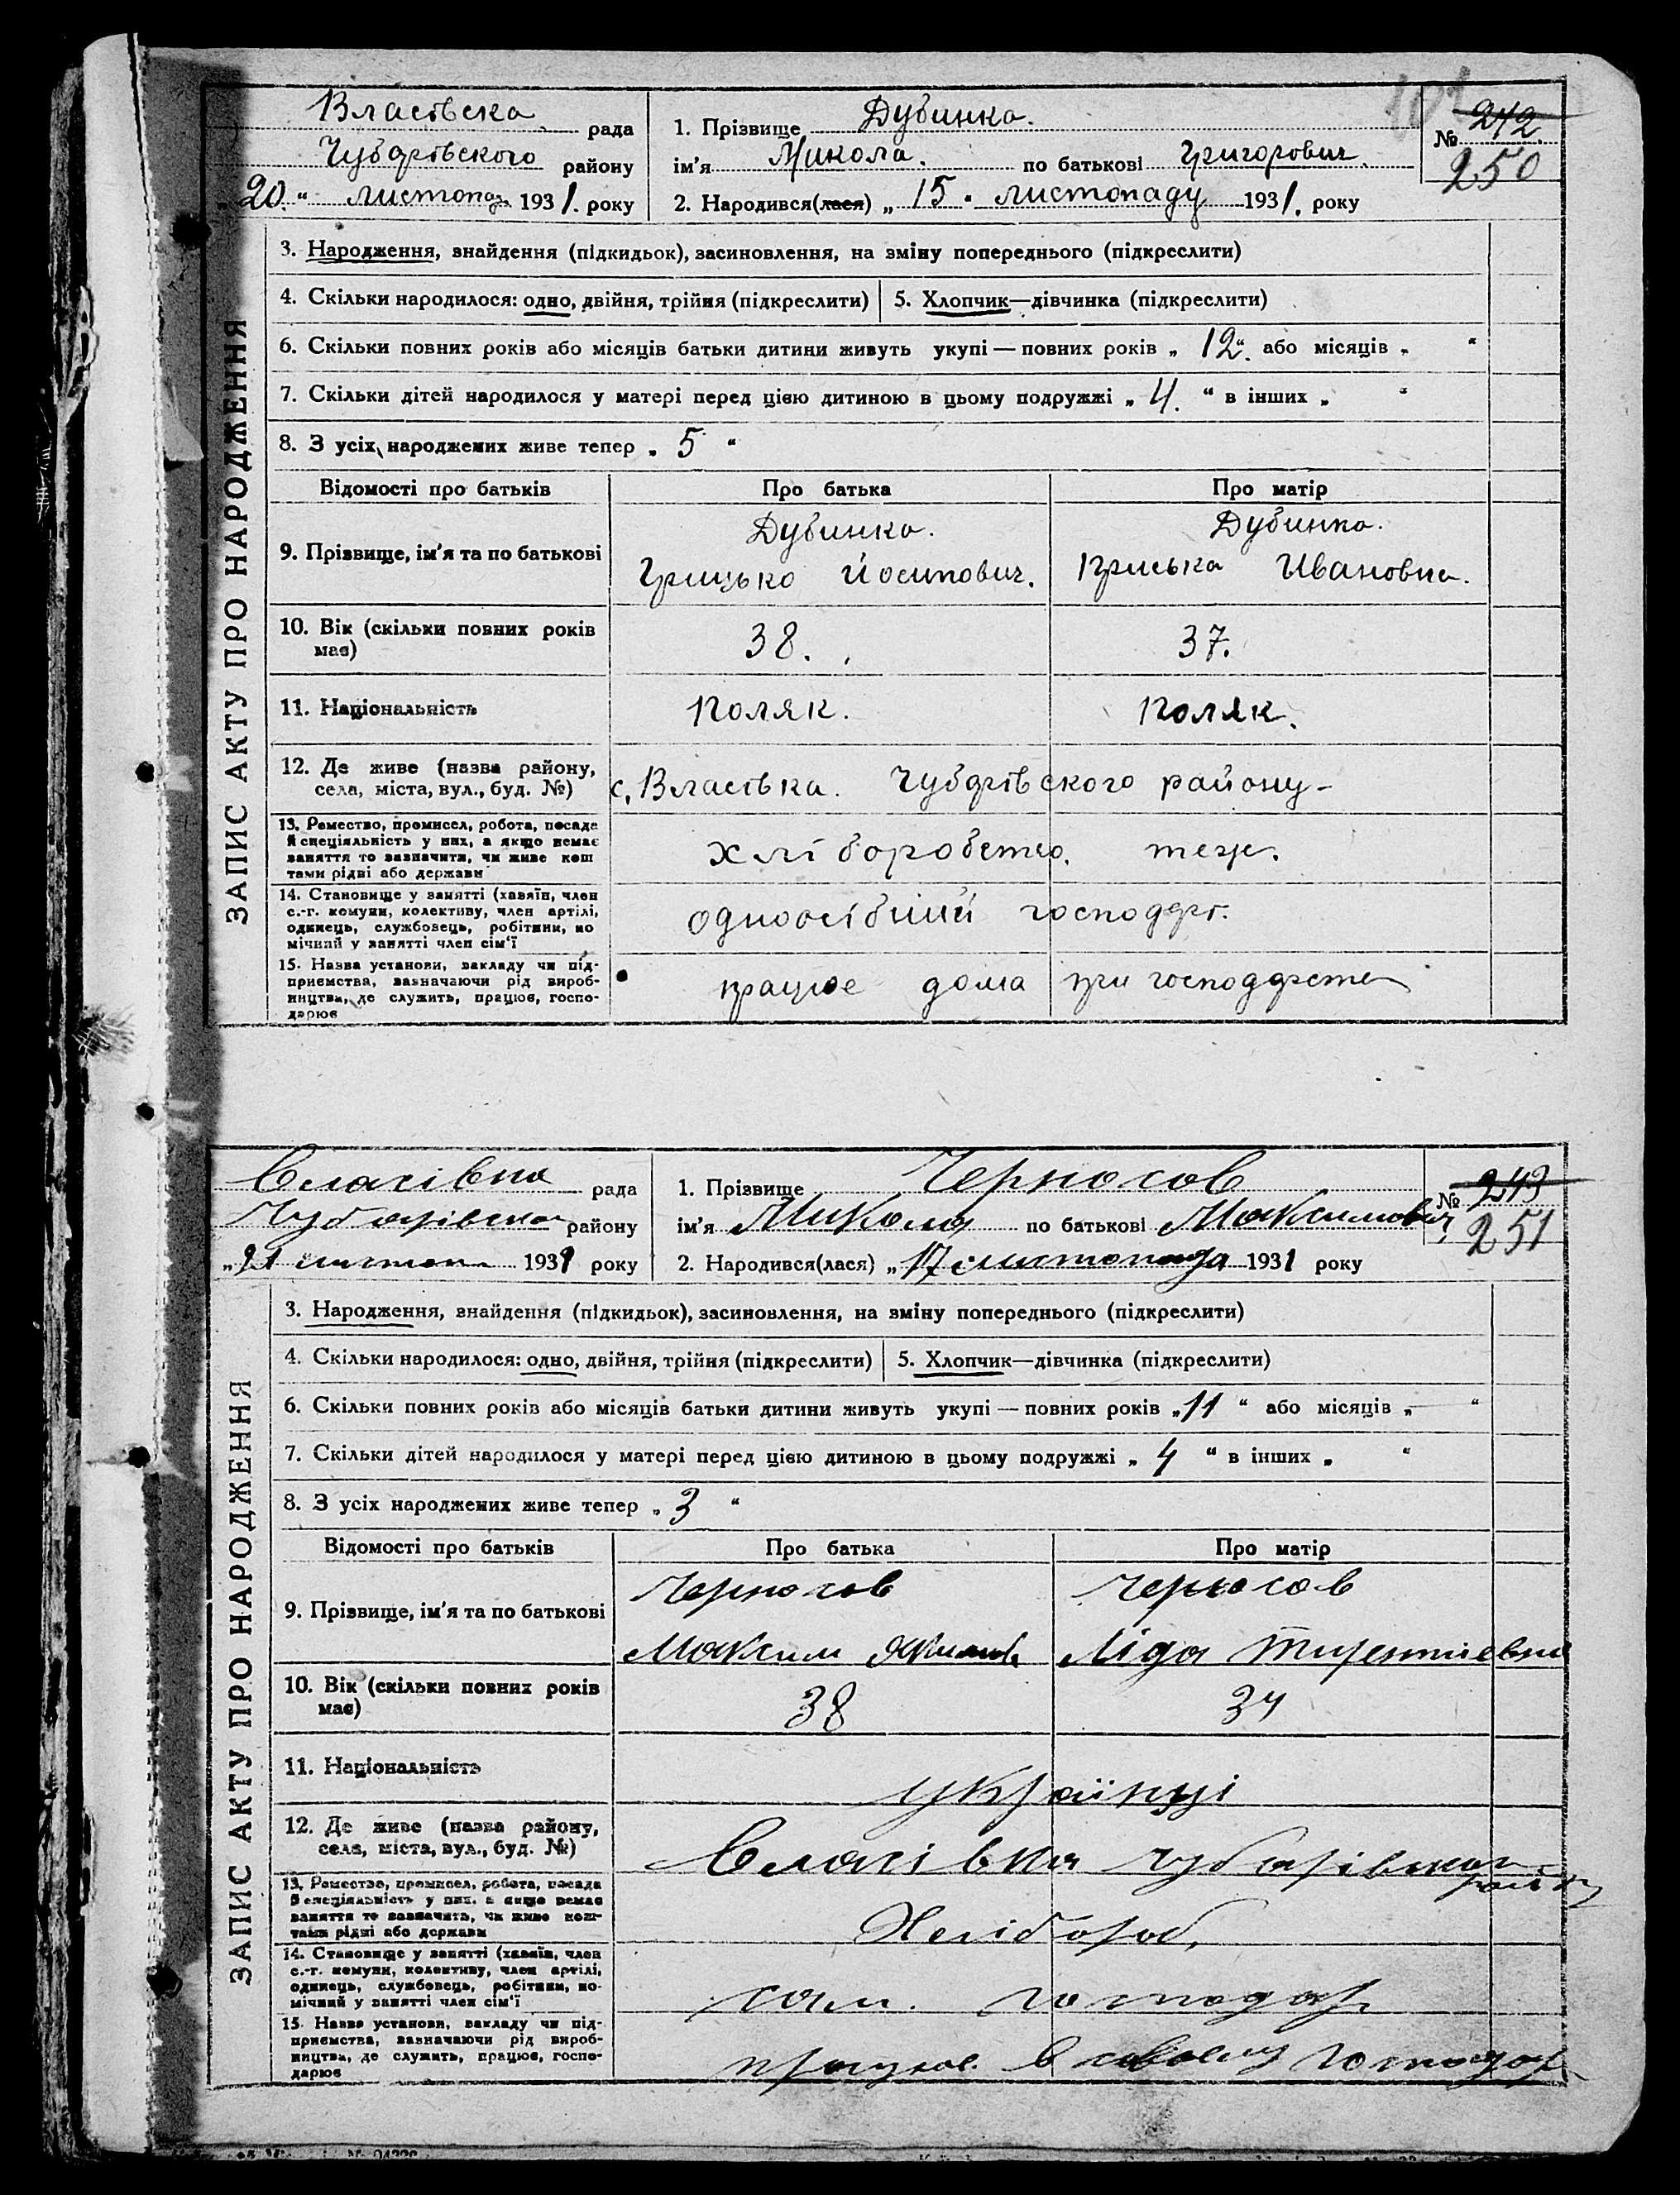 Власівска рада
Чубарівского району
„20.“ листопад 1931. року
1. Прізвище Дубинка.
ім'я Микола. по батькові Григорович.
2. Народився(лася) „15“ листопаду 1931. року
№ 242
250
ЗАПИС АКТУ ПРО НАРОДЖЕННЯ
3. Народження, знайдення (підкидьок), засиновлення, на зміну попереднього (підкреслити)
4. Скільки народилося: одно, двійня, трійня (підкреслити) 5. Хлопчик—дівчинка (підкреслити)
6. Скільки повних років або місяців батьки дитини живуть укупі — повних років „12“. або місяців „ “
7. Скільки дітей народилося у матері перед цією дитиною в цьому подружжі „4.“ в інших „ “
8. З усіх народжених живе тепер „5“
Відомості про батьків Про батька Про матір
9. Прізвище, ім'я та по батькові
Дубинка. Дубинка.
Грицько Йосипович. Ивановна.
10. Вік (скільки повних років має) 38. 37.
11. Національність поляк. поляк.
12. Де живе (назва району, села, міста, вул., буд. №)
с. Власівка. Чубарівского району
13. Ремество, промисел, робота, посада й спеціяльність у них, а якщо немає заняття то зазначити, чи живе коштами рідні або держави
хліборобство. теж.
14. Становище у занятті (хазяїн, член с.-г. комуни, колективу, член артілі, одинець, службовець, робітник, помічний у занятті член сім'ї
одноосібний господар.
15. Назва установи, закладу чи підприємства, зазначаючи рід виробництва, де служить, працює, господарює
працює дома при господарстве
Власівка рада
Чубарівського району
„21 листоп 1931 року
1. Прізвище Черносов
ім'я Микола по батькові Максимович
2. Народився(лася) „17 листопада 1931 року
№ 243
251
ЗАПИС АКТУ ПРО НАРОДЖЕННЯ
3. Народження, знайдення (підкидьок), засиновлення, на зміну попереднього (підкреслити)
4. Скільки народилося: одно, двійня, трійня (підкреслити) 5. Хлопчик—дівчинка (підкреслити)
6. Скільки повних років або місяців батьки дитини живуть укупі — повних років „11“ або місяців „ “
7. Скільки дітей народилося у матері перед цією дитиною в цьому подружжі „4“ в інших „ “
8. З усіх народжених живе тепер „3“
Відомості про батьків Про батька Про матір
9. Прізвище, ім'я та по батькові
Черносов Черносов
Максим Ліда Тирентиевна
10. Вік (скільки повних років має) 38 34
11. Національність українці
12. Де живе (назва району, села, міста, вул., буд. №)
Власівка Чубарівского району
13. Ремество, промисел, робота, посада й спеціяльність у них, а якщо немає заняття то зазначить, чи живе коштами рідні або держави
Хлібороб,
14. Становище у занятті (хазяїн, член с.-г. комуни, колективу, член артілі, одинець, службовець, робітник, помічний у занятті член сім'ї
сам. господар
15. Назва установи, закладу чи підприємства, зазначаючи рід виробництва, де служить, працює, господарює
працює в своему господар